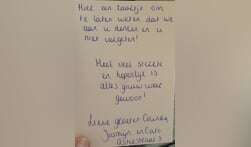 Hier een kaartje om
te laten weten dat we
aan u denken en u
niet vergeten!
Heel veel sterkte
en hopelijk is
alles gauw weer
gewoon!
Lieve groeten Corinda,
Jasmijn en Caro